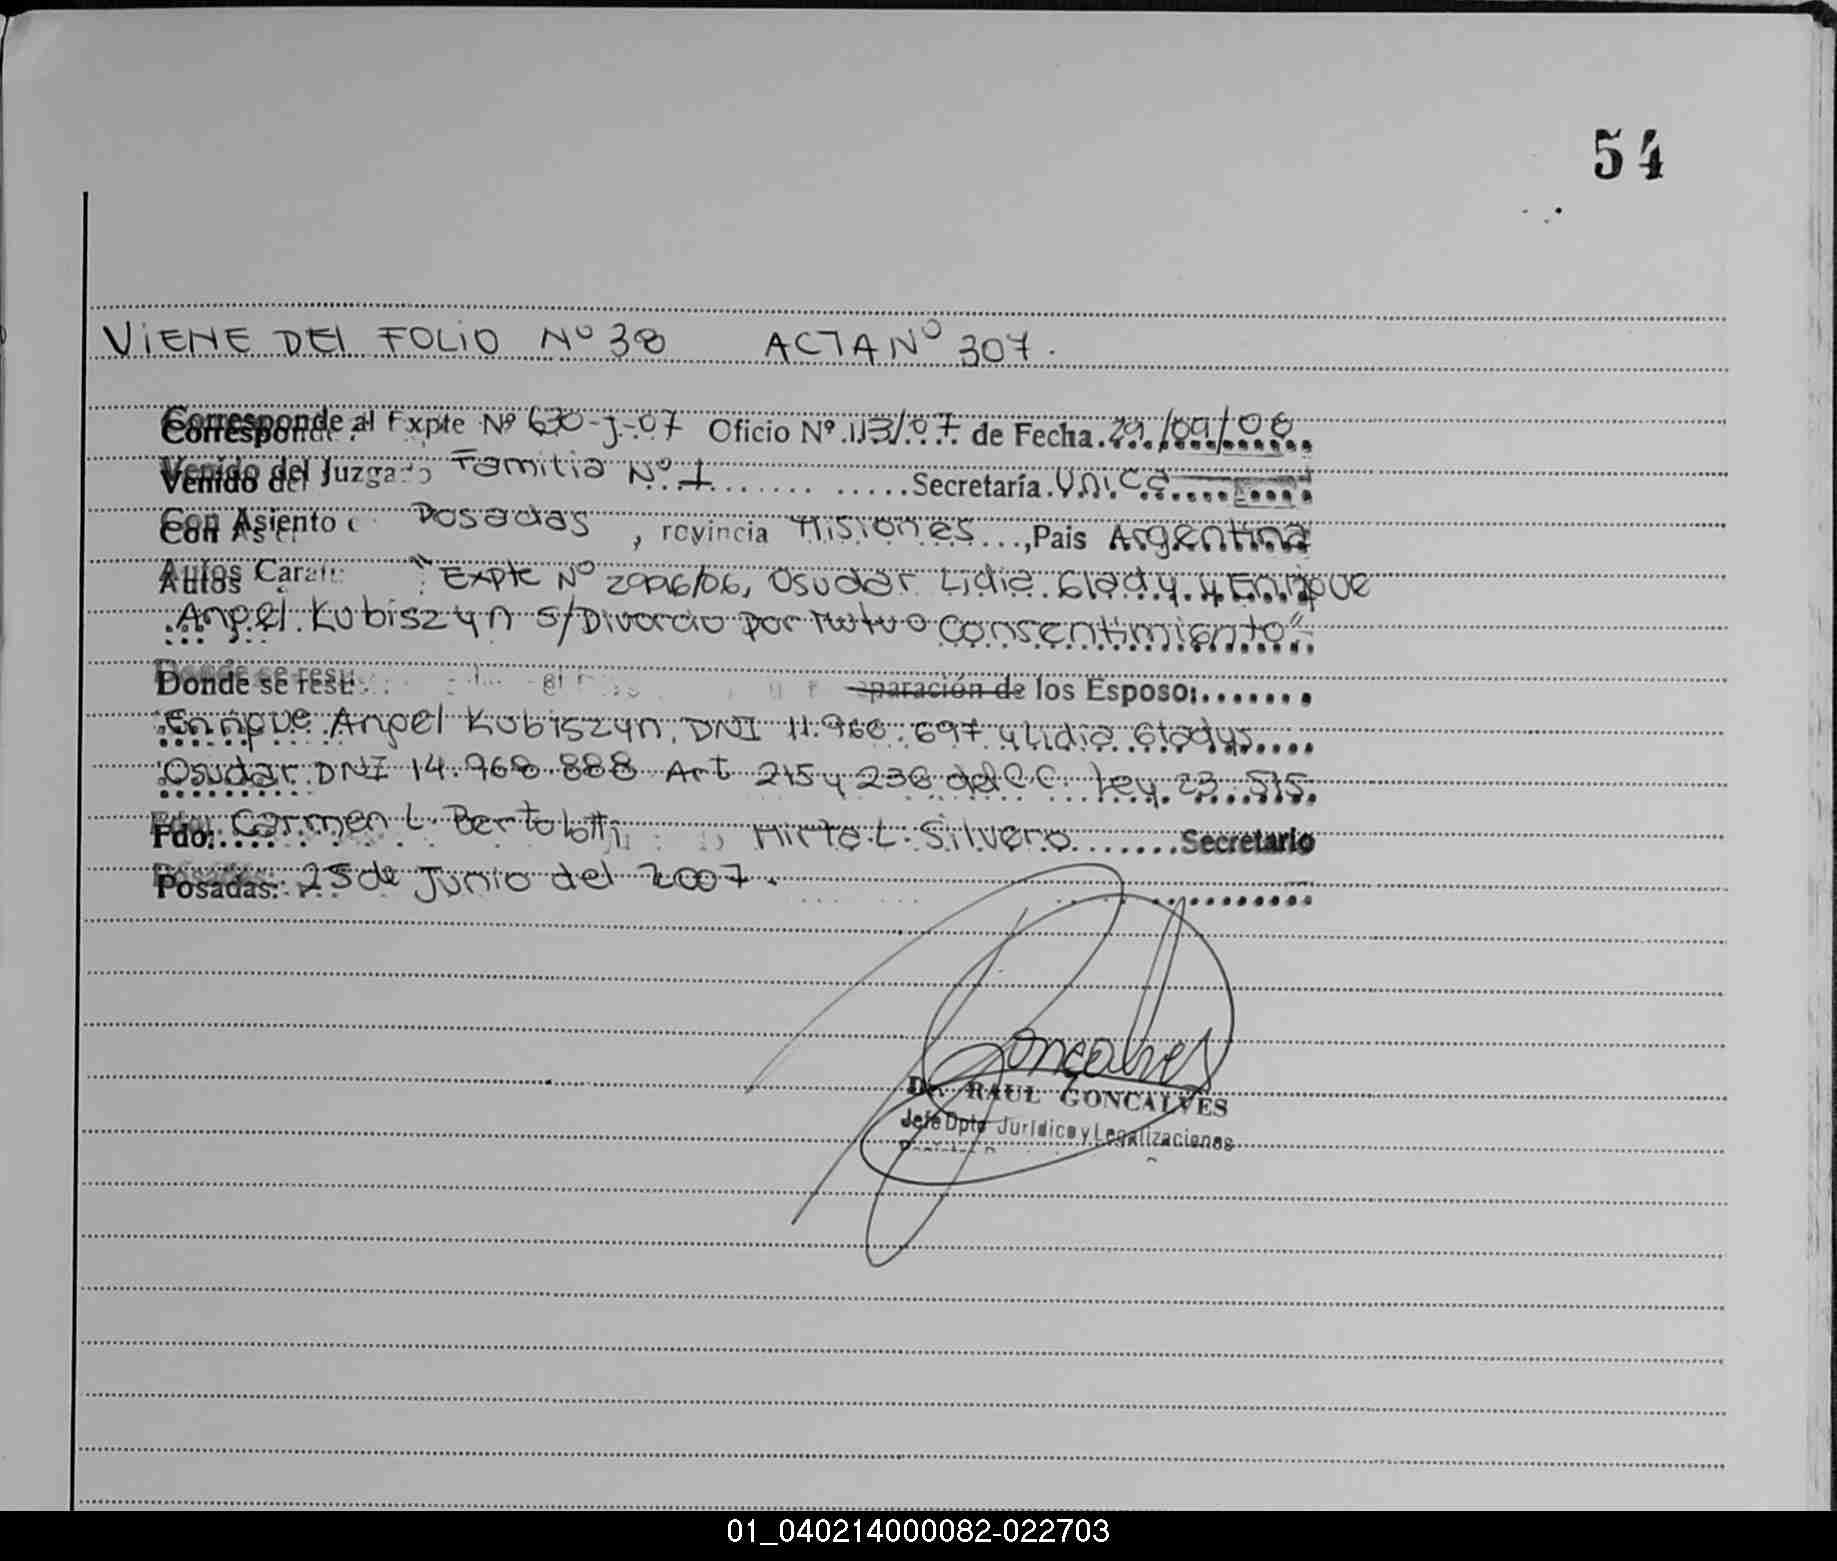 54
VIENE DEL FOLIO Nº 38 ACTA Nº 307.
Corresponde al Expte Nº 630-J-07 Oficio Nº 113/07 de Fecha 29/09/06
Venido del Juzgado Familia Nº 1 Secretaría Unica
Con Asiento Posadas, rovincia Misiones, Pais Argentina
Autos Carat "Expte Nº 2996/06, Osudar Lidia Glady y Enrique
Angel Kubiszyn s/Divorcio Por Mutuo Consentimiento"
Donde se resu el paración de los Esposo:
Enrique Angel Kubiszyn, DNI 11.966.697 y Lidia Gladys
Osudar DNI 14.968.888 Art 215 y 236 del C.C. Ley 23.515.
Fdo: Carmen L. Bertolotti Mirta L. Silvero Secretario
Posadas: 25 de Junio del 2007.
Goncalves
Dr. RAUL GONCALVES
Jefe Dpto Jurídico y Legalizaciones
01_040214000082-022703